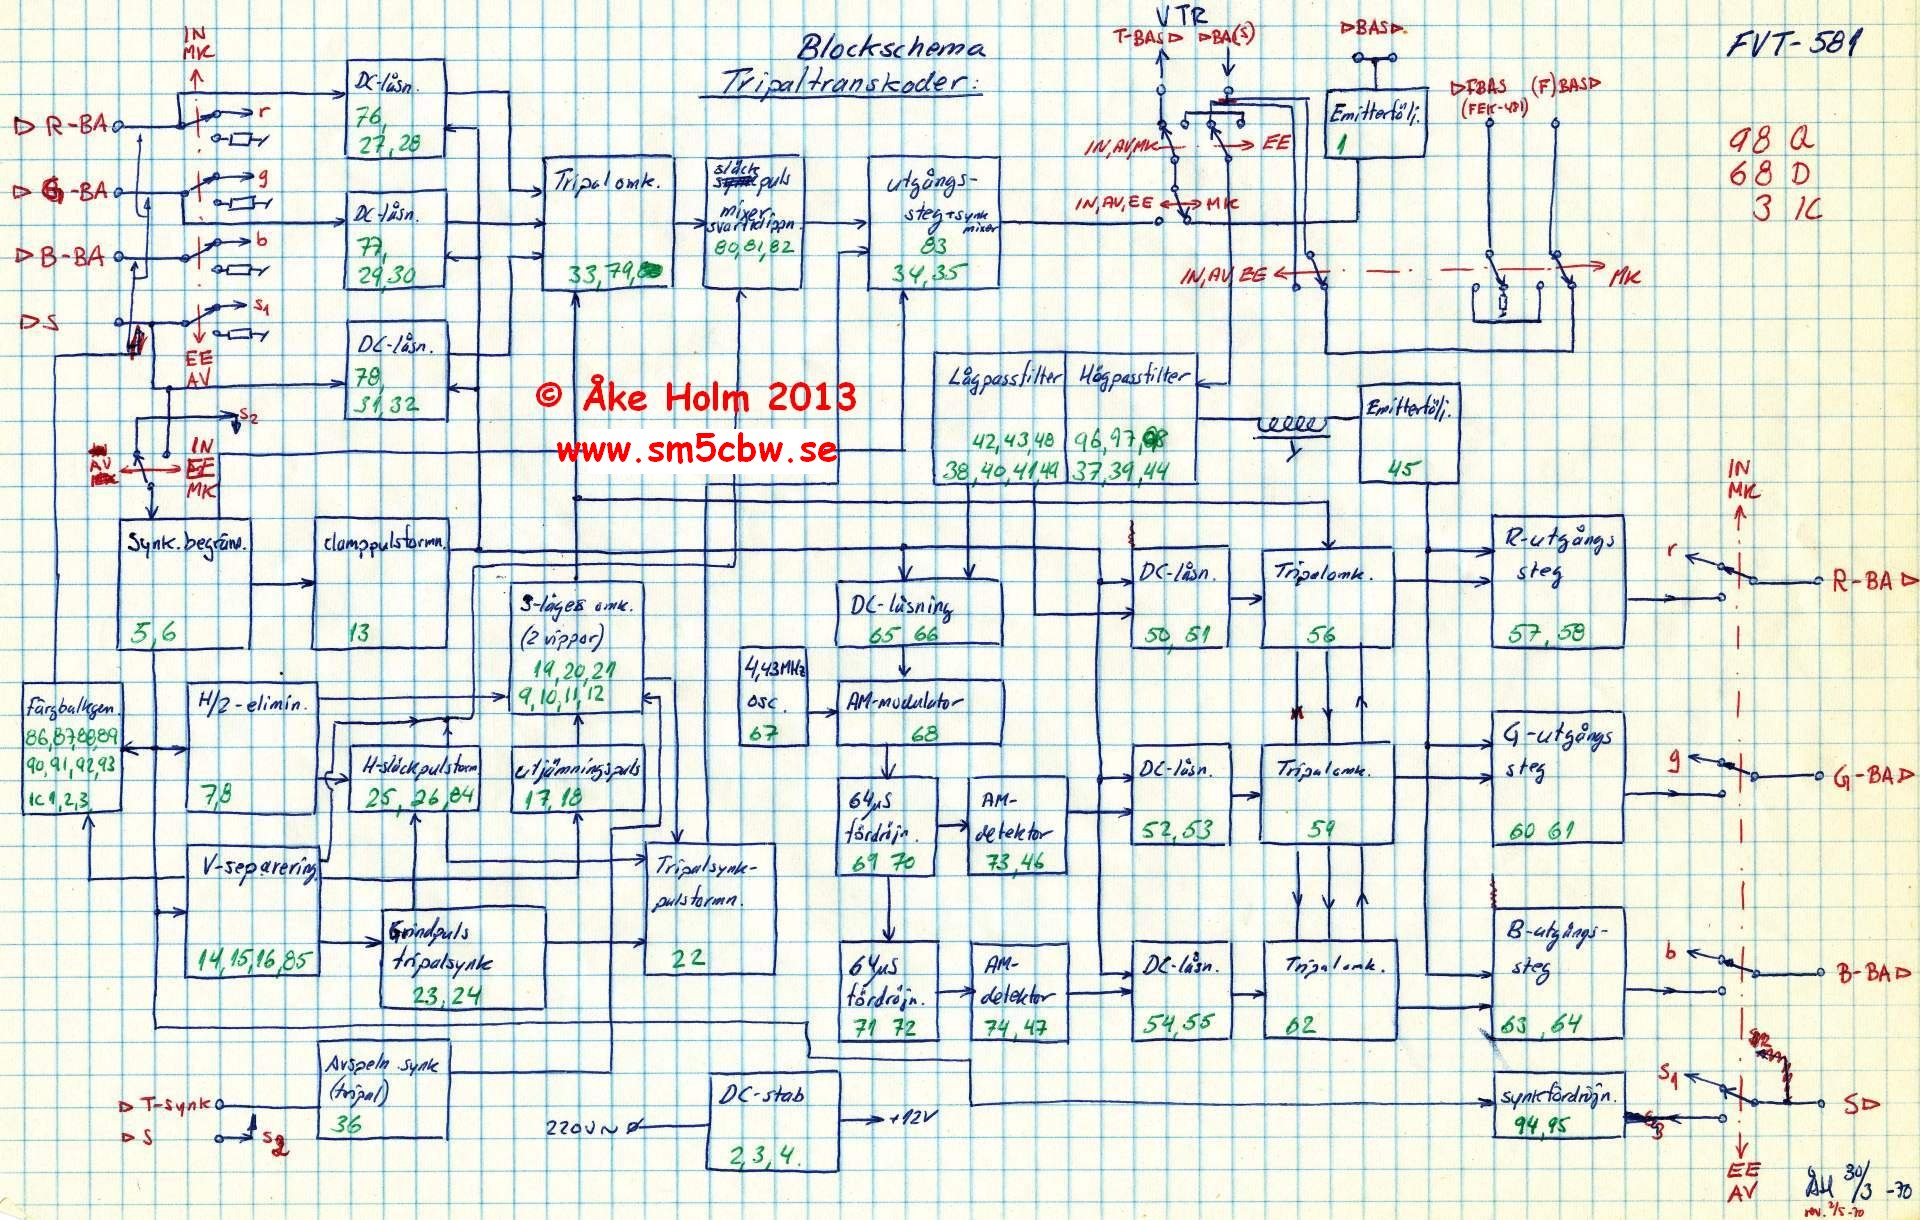 Blockschema
Tripaltranskoder:
FVT-581
98 Q
68 D
3 IC
VTR
T-BAS▷ ▷BA(S)
▷BAS▷
▷FBAS
(FEK-481)
(F)BAS▷
IN
MK
▷ R-BA
r
▷ G-BA
g
▷ B-BA
b
▷ S
s1
EE
AV
s2
AV
IN
EE
MK
DC-låsn.
76,
27,28
DC-låsn.
77,
29,30
DC-låsn.
78,
31,32
Tripalomk.
33,79,
släck
puls
mixer
svartklippn.
80,81,82
utgångs-
steg+synk
mixer
83
34,35
Emitterfölj.
1
IN,AV,MK
EE
IN,AV,EE
MK
IN,AV,EE
MK
© Åke Holm 2013
www.sm5cbw.se
Lågpassfilter
42,43,48
38,40,41,49
Högpassfilter
96,97,98
37,39,44
Y
Emitterfölj.
45
Synk.begräns.
5,6
Clamppulsformn.
13
3-läges omk.
(2 vippor)
19,20,21
9,10,11,12
DC-låsning
65 66
4,43MHz
osc.
67
AM-modulator
68
DC-låsn.
50,51
Tripalomk.
56
R-utgångs
steg
57,58
IN
MK
r
R-BA ▷
Färgbalkgen.
86,87,88,89
90,91,92,93
IC1,2,3
H/2-elimin.
7,8
H-släckpulsform
25,26,84
utjämningspuls
17,18
64µS
fördröjn.
69 70
AM-
detektor
73,46
DC-låsn.
52,53
Tripalomk.
59
G-utgångs
steg
60 61
g
G-BA▷
V-separering
14,15,16,85
Grindpuls
tripalsynk
23,24
Tripalsynk-
pulsformn.
22
64µS
fördröjn.
71 72
AM-
detektor
74,47
DC-låsn.
54,55
Tripalomk.
62
B-utgångs-
steg
63,64
b
B-BA▷
Avspeln.synk
(tripal)
36
▷ T-synk
▷ S
s2
220V~
DC-stab
2,3,4.
+12V
synkfördröjn.
94,95
s1
S▷
EE
AV
ÅH 30/3 -70
rev. 2/5-70